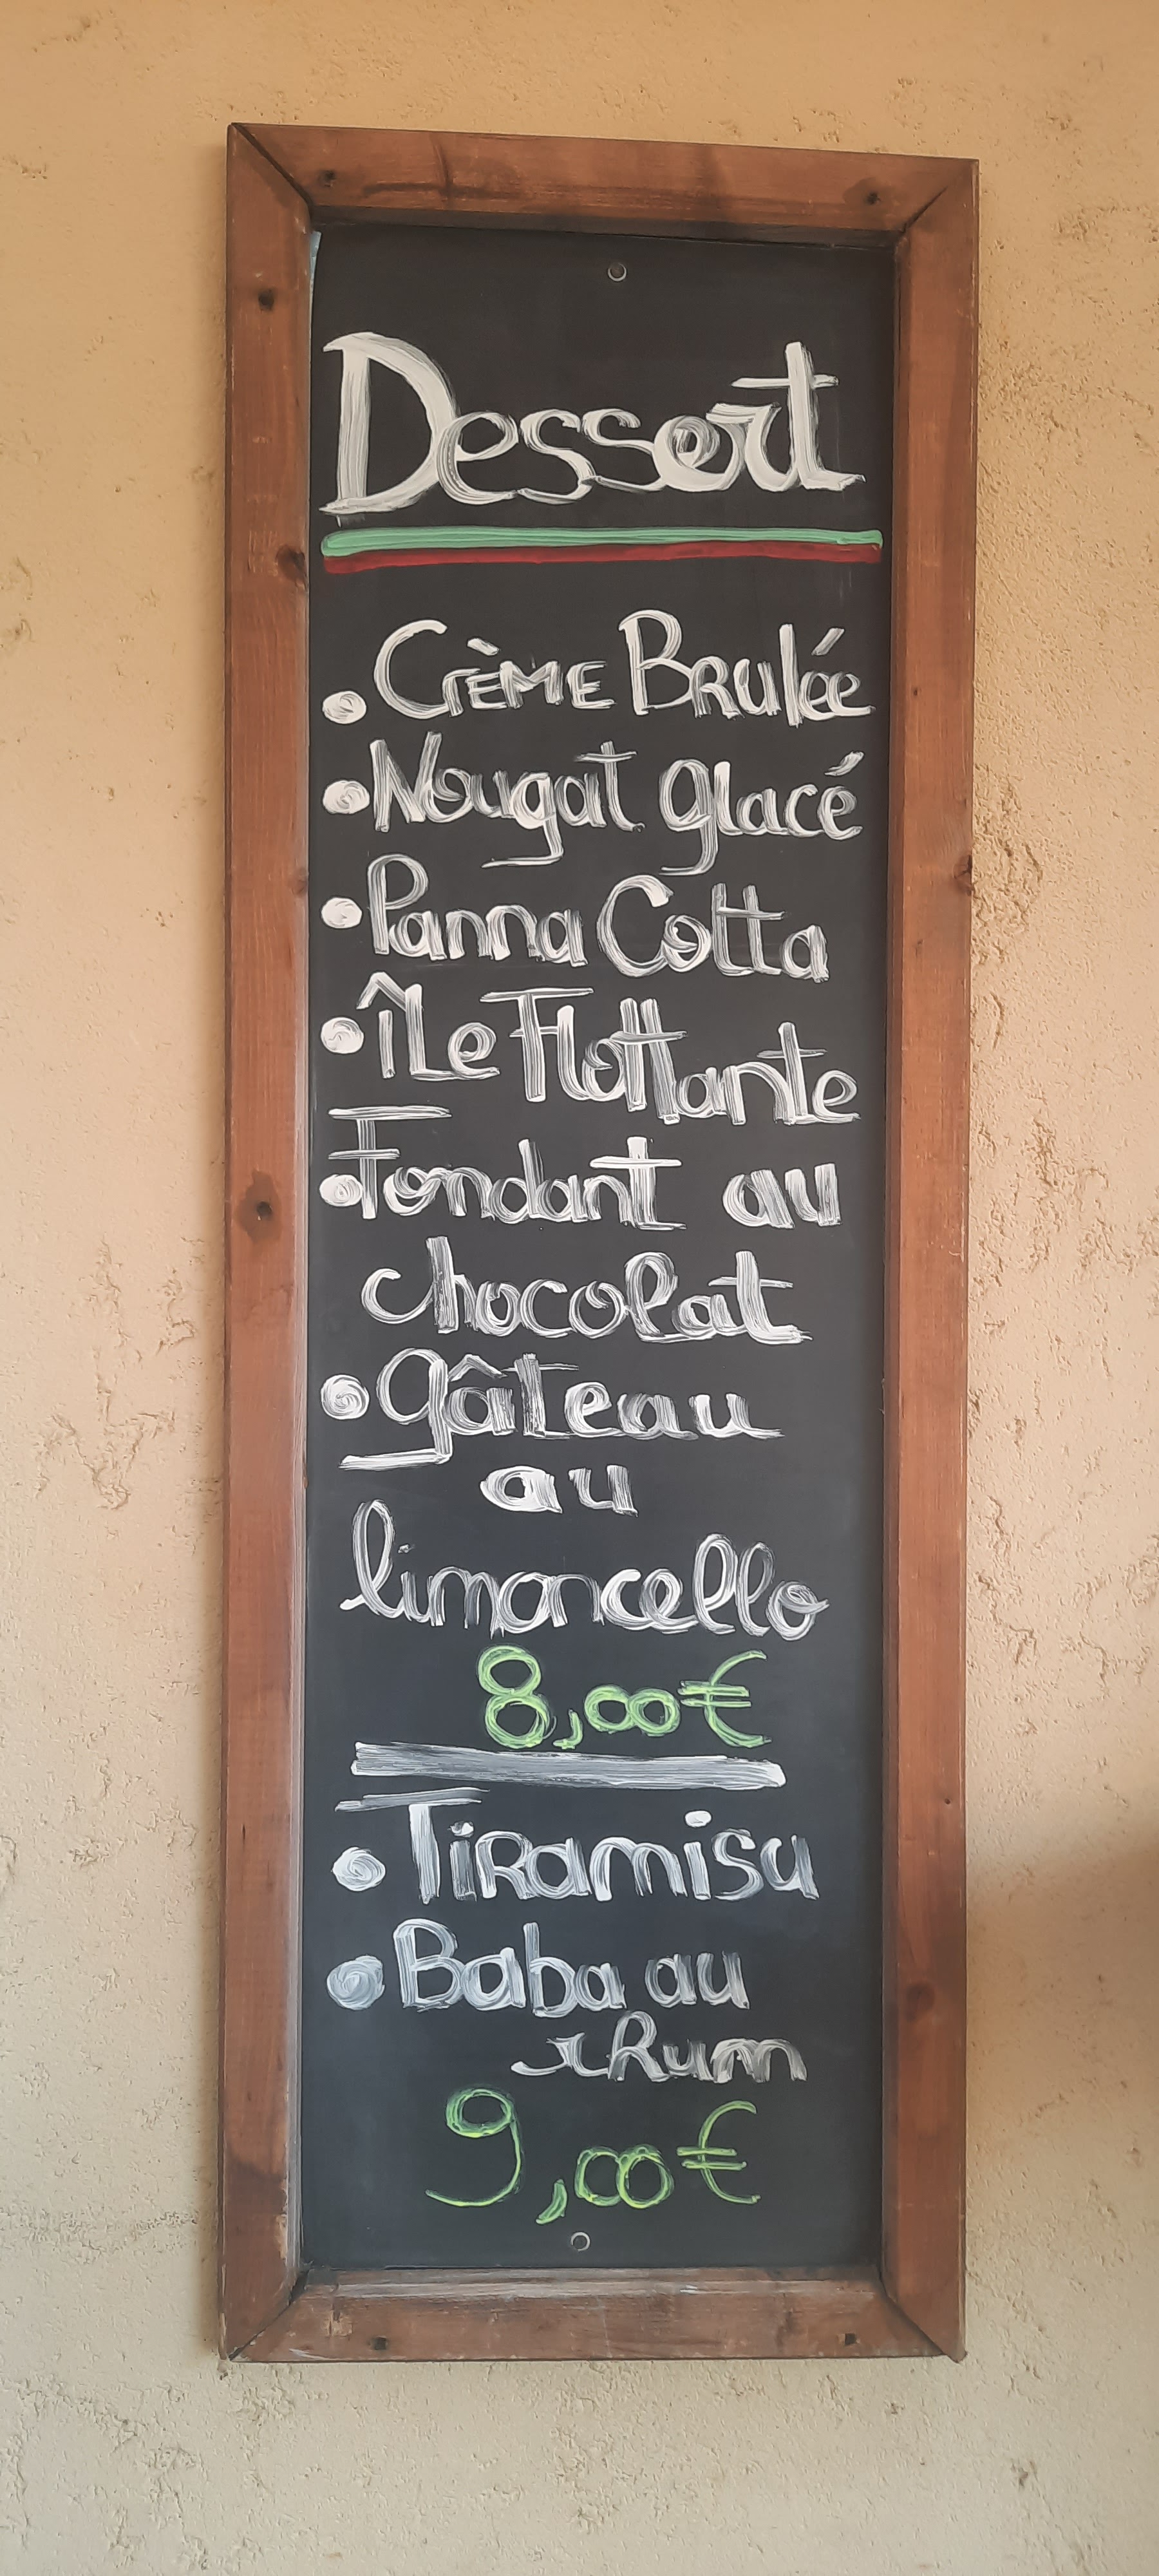 Dessert
• Crème Brulée
• Nougat glacé
• Panna Cotta
• Île Flottante
• Fondant au
chocolat
• gâteau
au
limoncello
8,00€
• Tiramisu
• Baba au
Rhum
9,00€